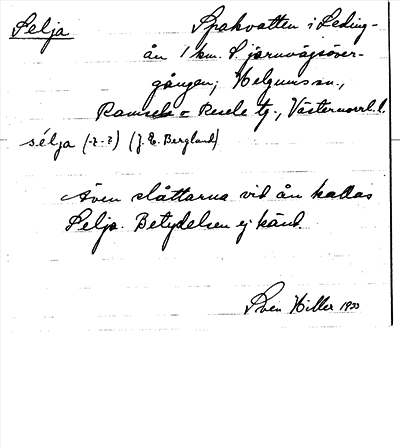 Selja
Spakvatten i Leding-
ån 1 km. S. järnvägsöver-
gången; Helgums sn.,
Ramsele o Resele tg., Västernorrl. l.
sélja (-2-2) (J. E. Berglund)
Även slåttarna vid ån kallas
Selja. Betydelsen ej känd.
Sven Hiller 1933